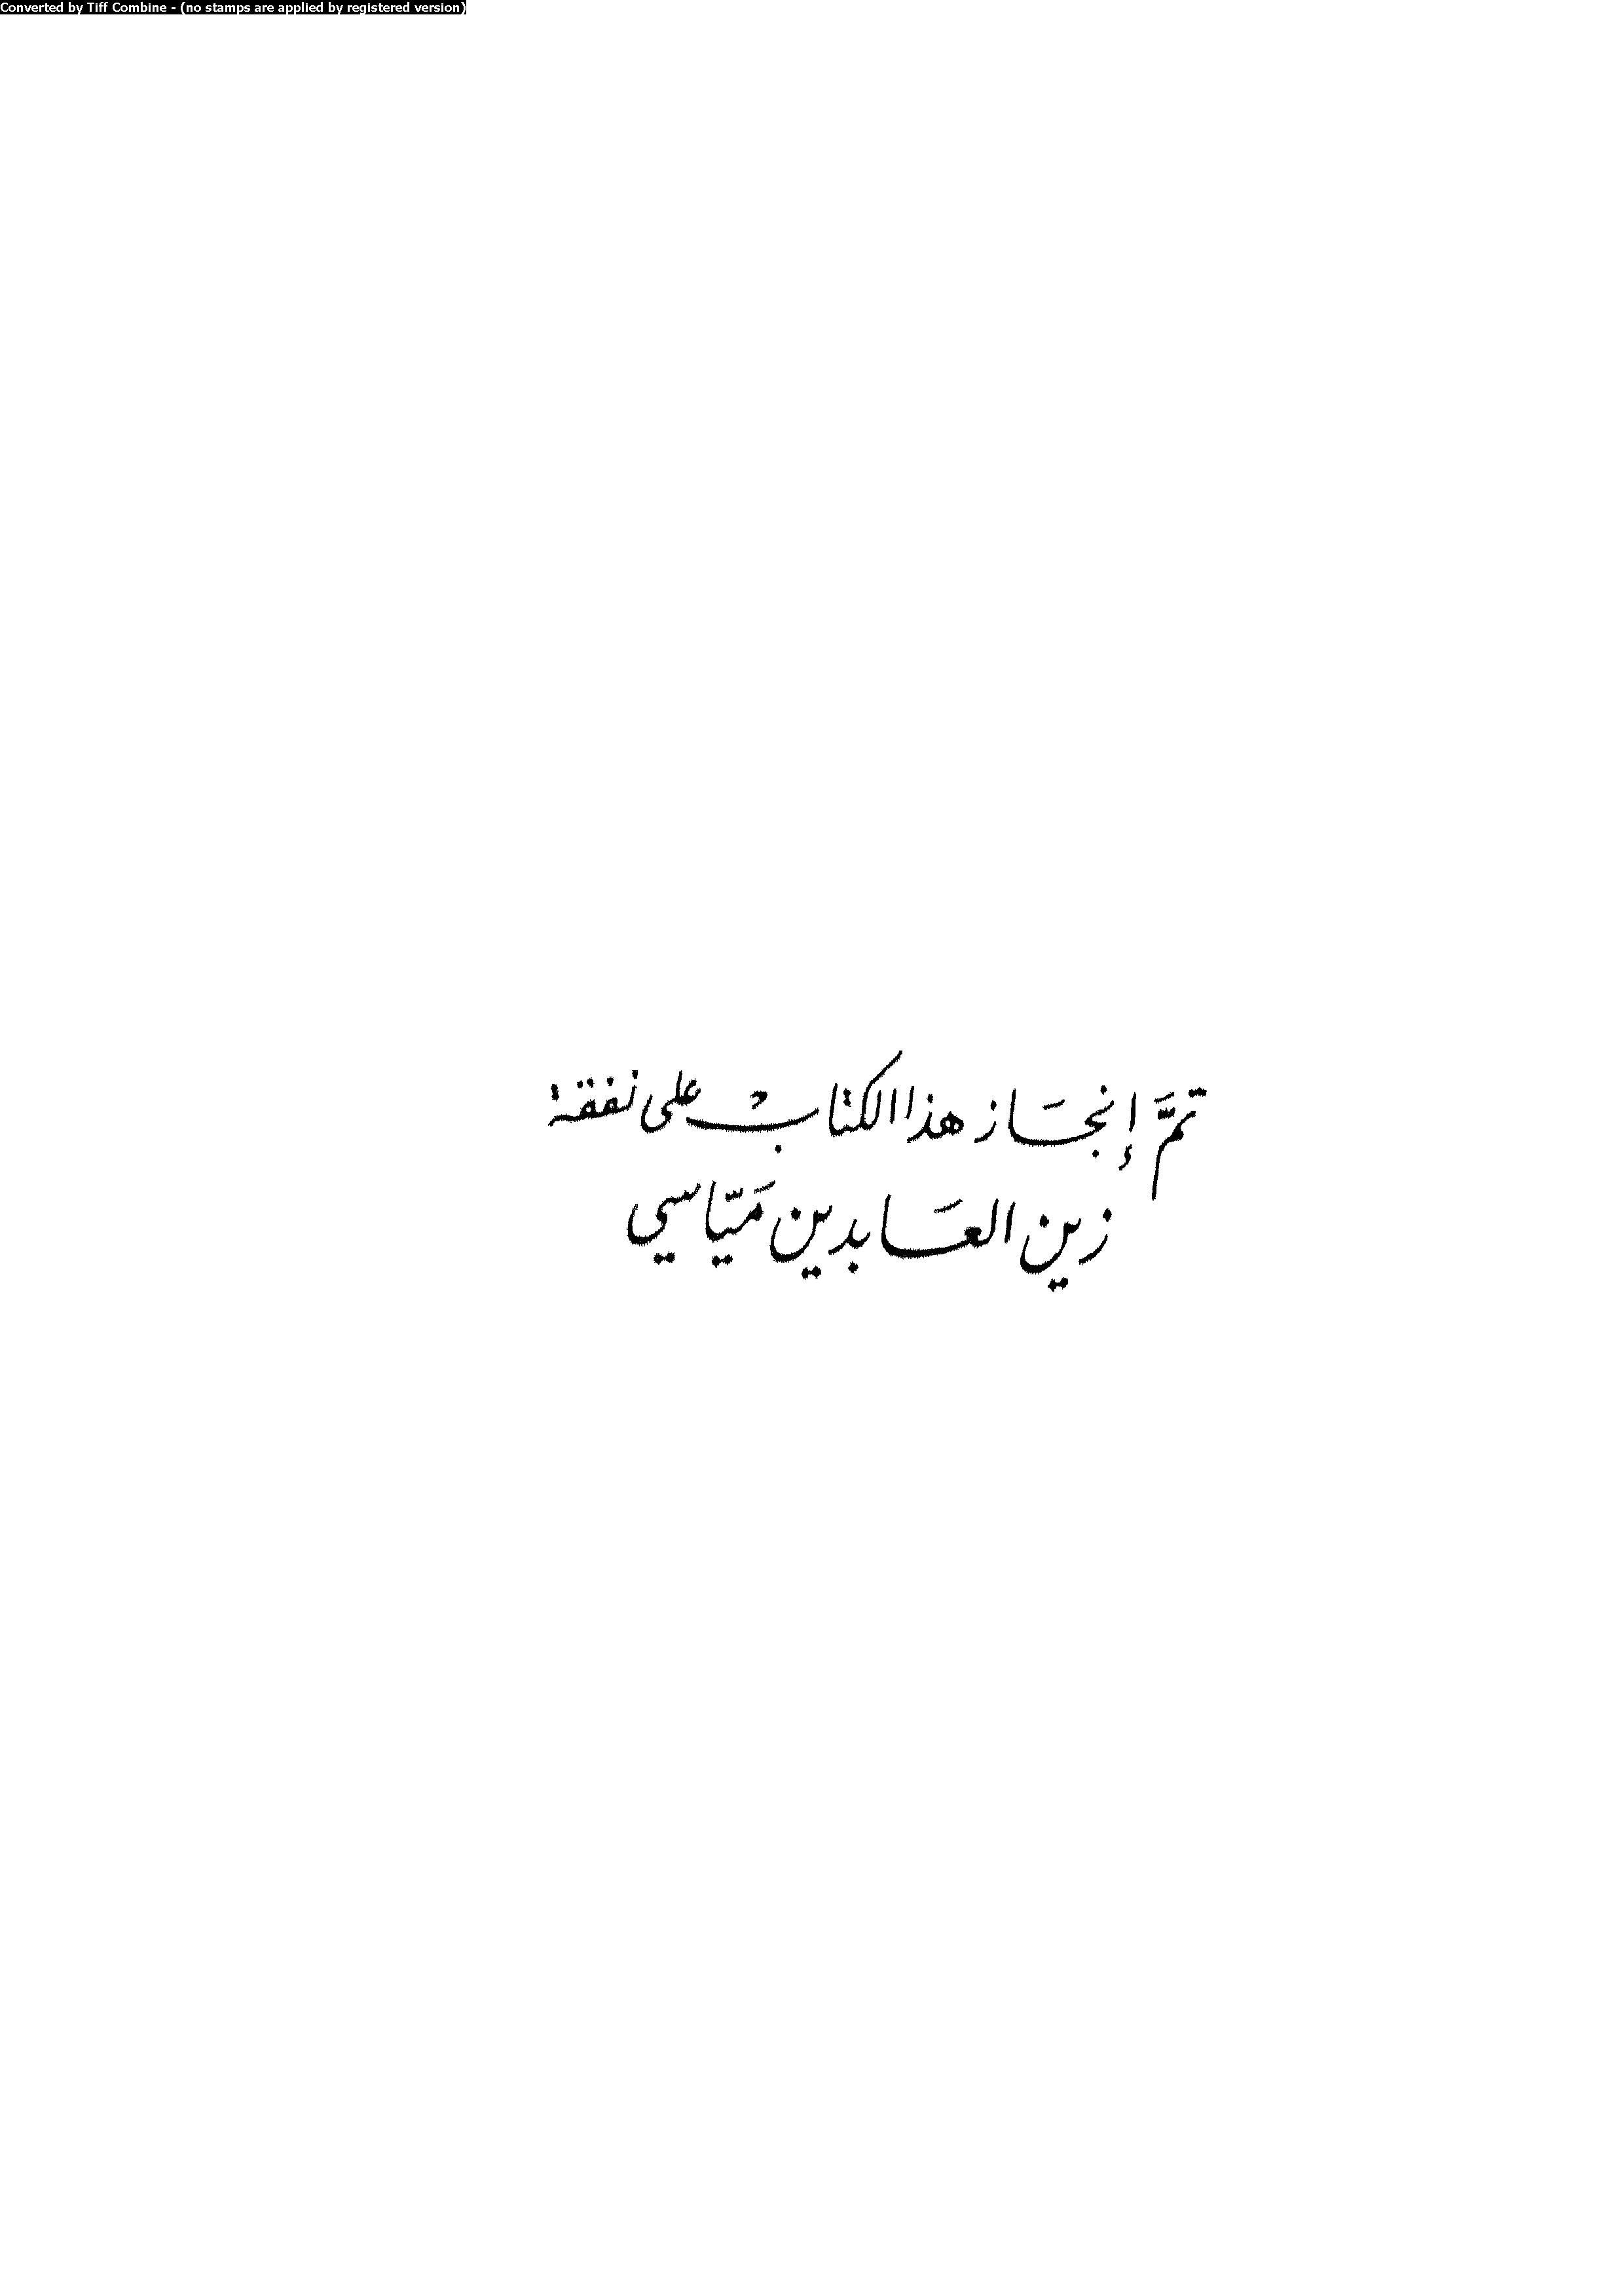 Converted by Tiff Combine - (no stamps are applied by registered version)
تمَّ إنجَاز هذا الكتاب على نفقة
زين العَابدين مَيّاسي